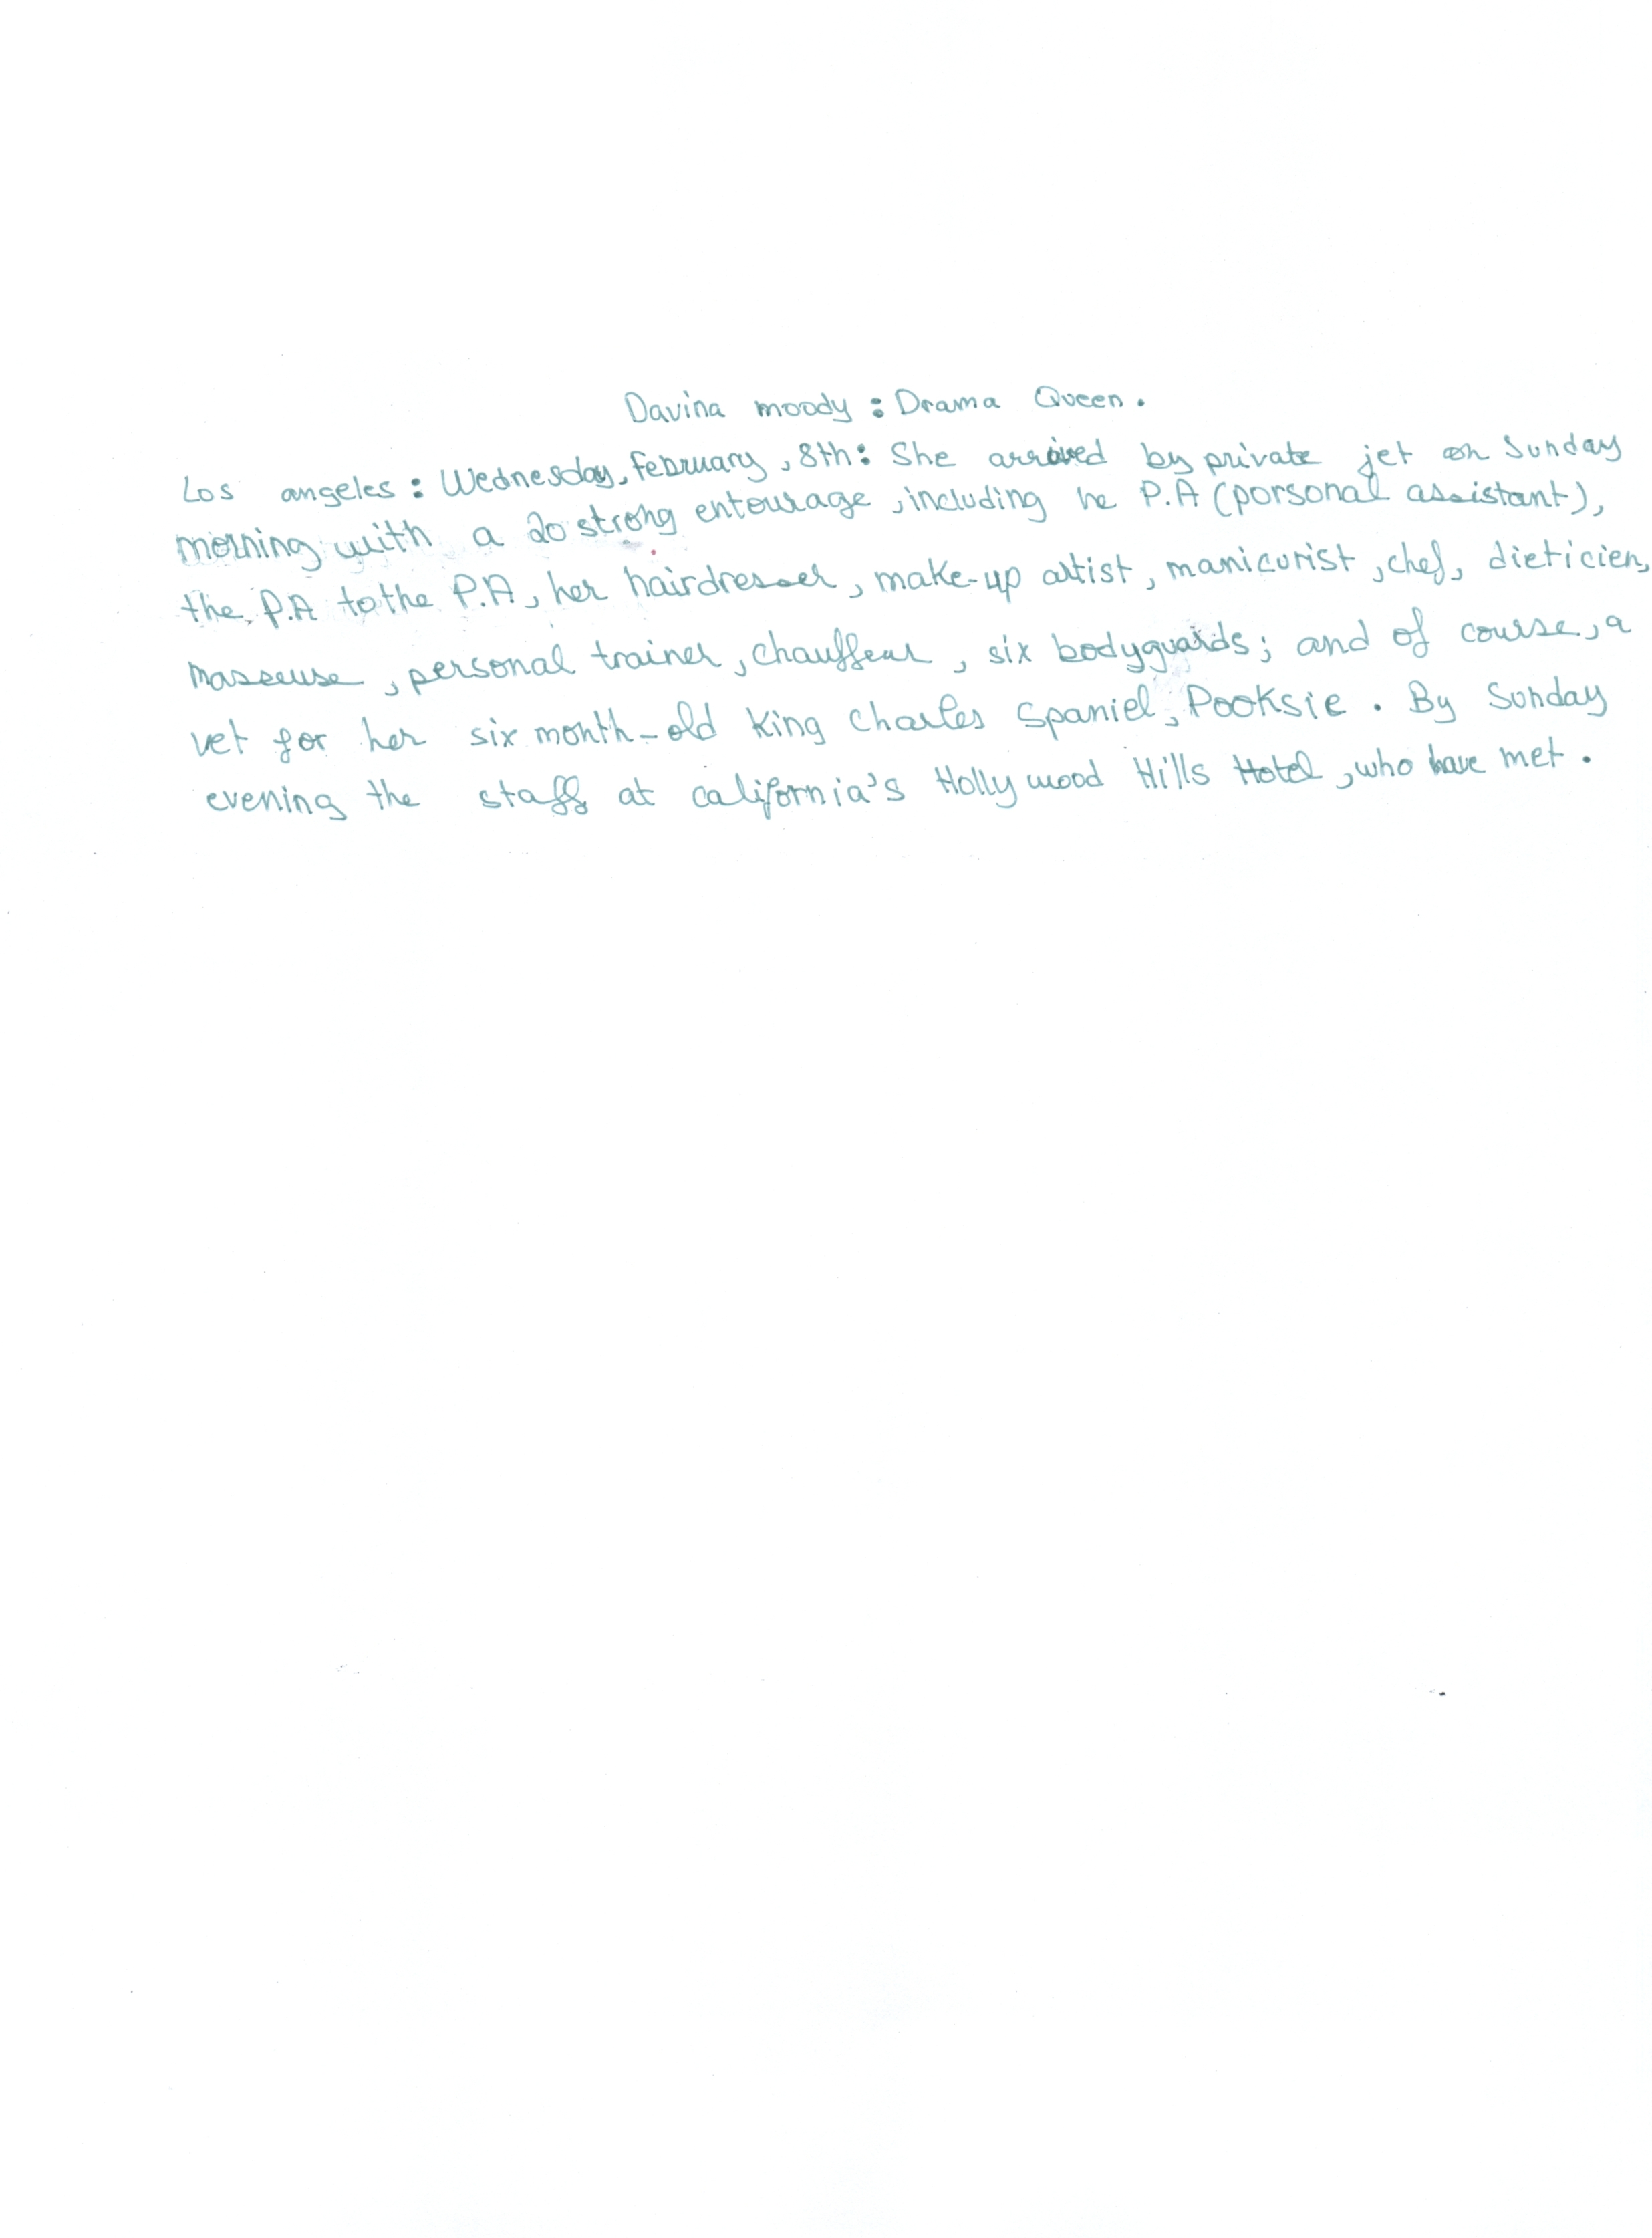 Davina moody : Drama Queen.
Los angeles : Wednesday, February, 8th : She arrived by private jet on Sunday
morning with a 20 strong entourage, including he P.A (porsonal assistant),
the P.A to the P.A, her hairdresser, make-up artist, manicurist, chef, dieticien,
masseuse, personal trainer, chauffeur, six bodyguards; and of course, a
vet for her six month-old King Charles Spaniel, Pooksie. By Sunday
evening the staff at california's Hollywood Hills Hotel, who have met.